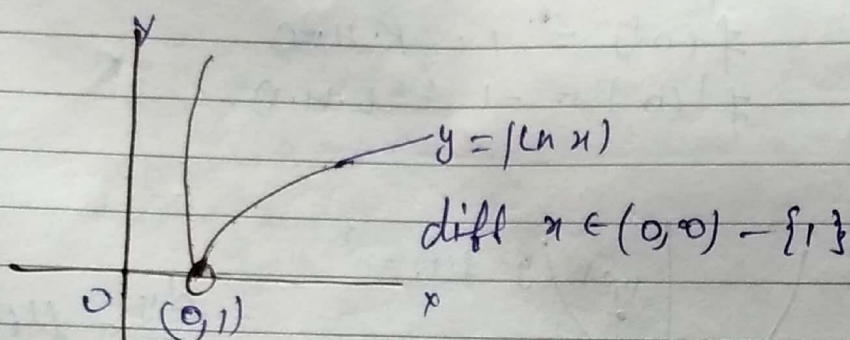 y
y = |ln x|
diff x ∈ (0, ∞) - {1}
O
(0,1)
x